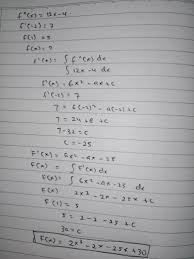 f"(x) = 12x - 4
f'(-2) = 7
f(1) = 5
f(x) = ?
f'(x) = ∫ f"(x) dx
∫ 12x - 4 dx
f'(x) = 6x² - 4x + c
f'(-2) = 7
7 = 6(-2)² - 4(-2) + c
7 = 24 + 8 + c
7 - 32 = c
c = -25
F'(x) = 6x² - 4x - 25
F(x) = ∫ f'(x) dx
F(x) ∫ 6x² - 4x - 25 dx
F(x) 2x³ - 2x - 25x + c
F(1) = 5
5 = 2 - 2 - 25 + c
30 = c
F(x) = 2x³ - 2x - 25x + 30